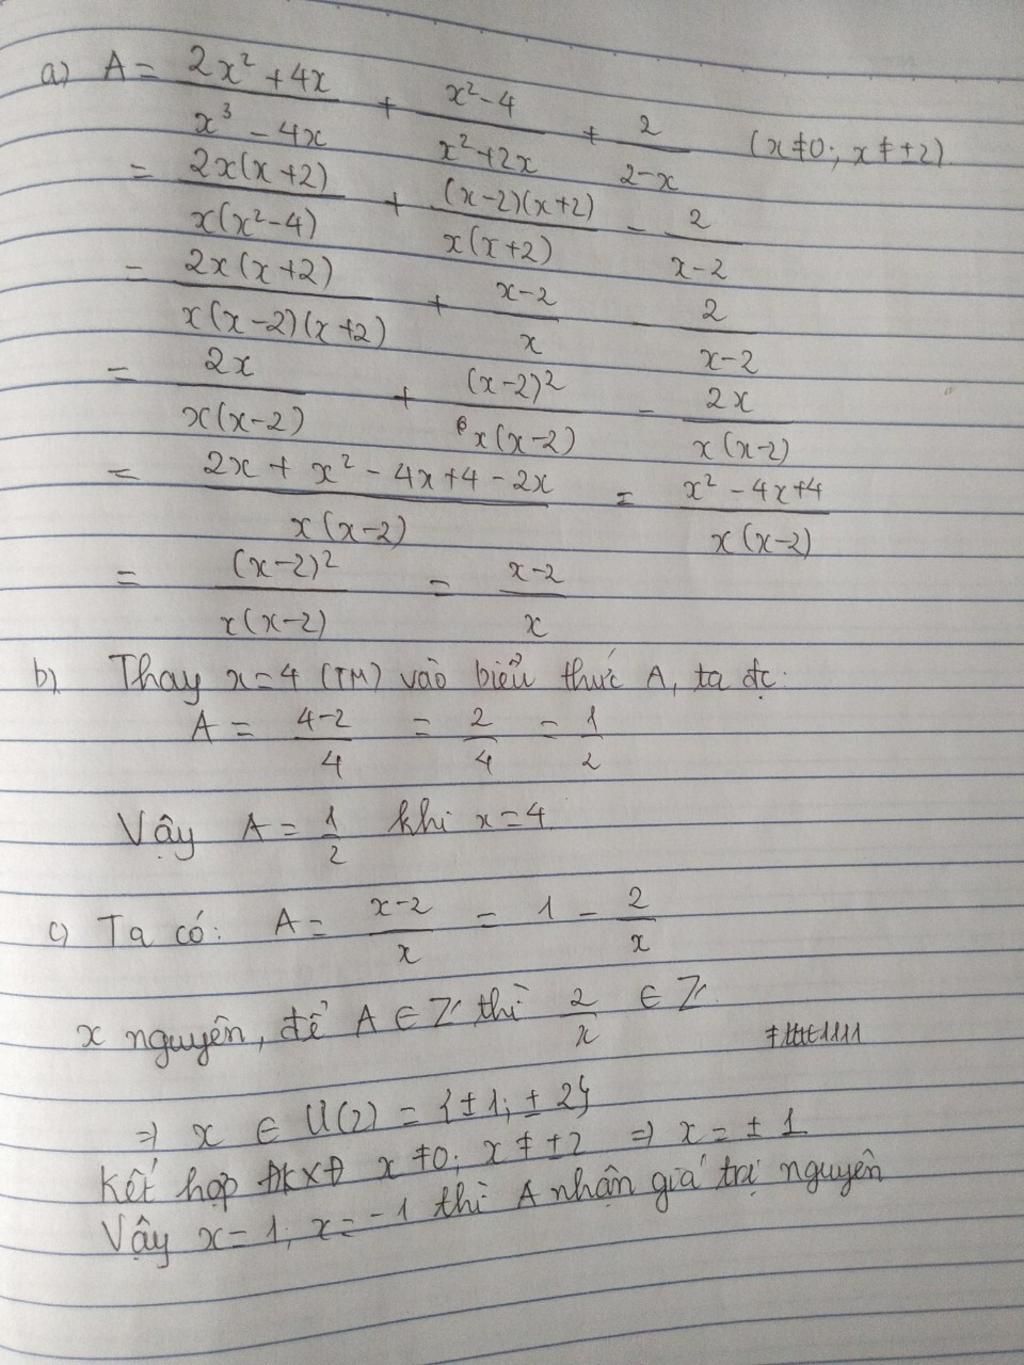 a) A = (2x² + 4x)/(x³ - 4x) + (x² - 4)/(x² + 2x) + 2/(2-x) (x ≠ 0; x ≠ ±2)
= 2x(x+2)/x(x²-4) + (x-2)(x+2)/x(x+2) - 2/(x-2)
= 2x(x+2)/x(x-2)(x+2) + (x-2)/x - 2/(x-2)
= 2x/x(x-2) + (x-2)²/x(x-2) - 2x/x(x-2)
= (2x + x² - 4x + 4 - 2x)/x(x-2) = (x² - 4x + 4)/x(x-2)
= (x-2)²/x(x-2) = (x-2)/x
b) Thay x = 4 (TM) vào biểu thức A, ta đc:
A = (4-2)/4 = 2/4 = 1/2
Vậy A = 1/2 khi x = 4
c) Ta có: A = (x-2)/x = 1 - 2/x
x nguyên, để A ∈ Z thì 2/x ∈ Z
⇒ x ∈ Ư(2) = {±1; ±2}
Kết hợp ĐKXĐ x ≠ 0; x ≠ ±2 ⇒ x = ±1
Vậy x = 1; x = -1 thì A nhận giá trị nguyên